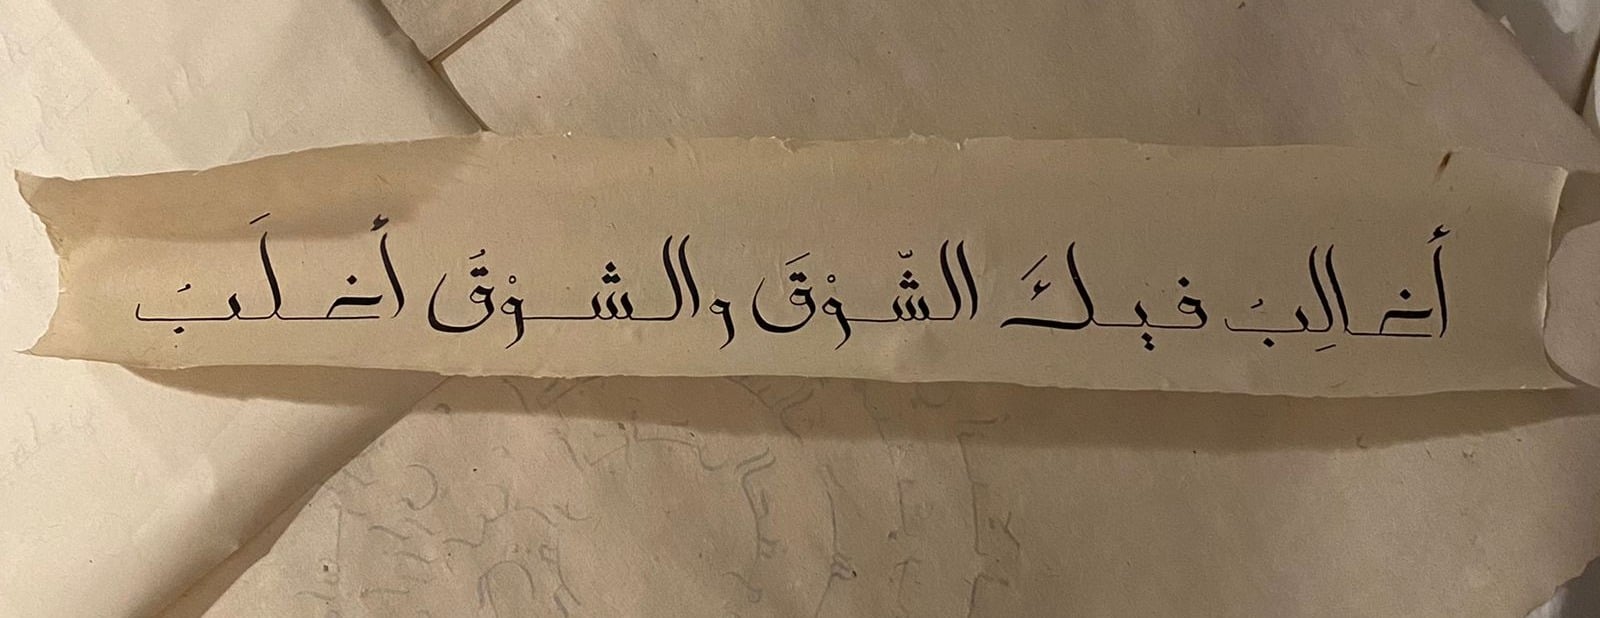 أغالِبُ فيكَ الشّوْقَ والشوْقُ أغلَبُ